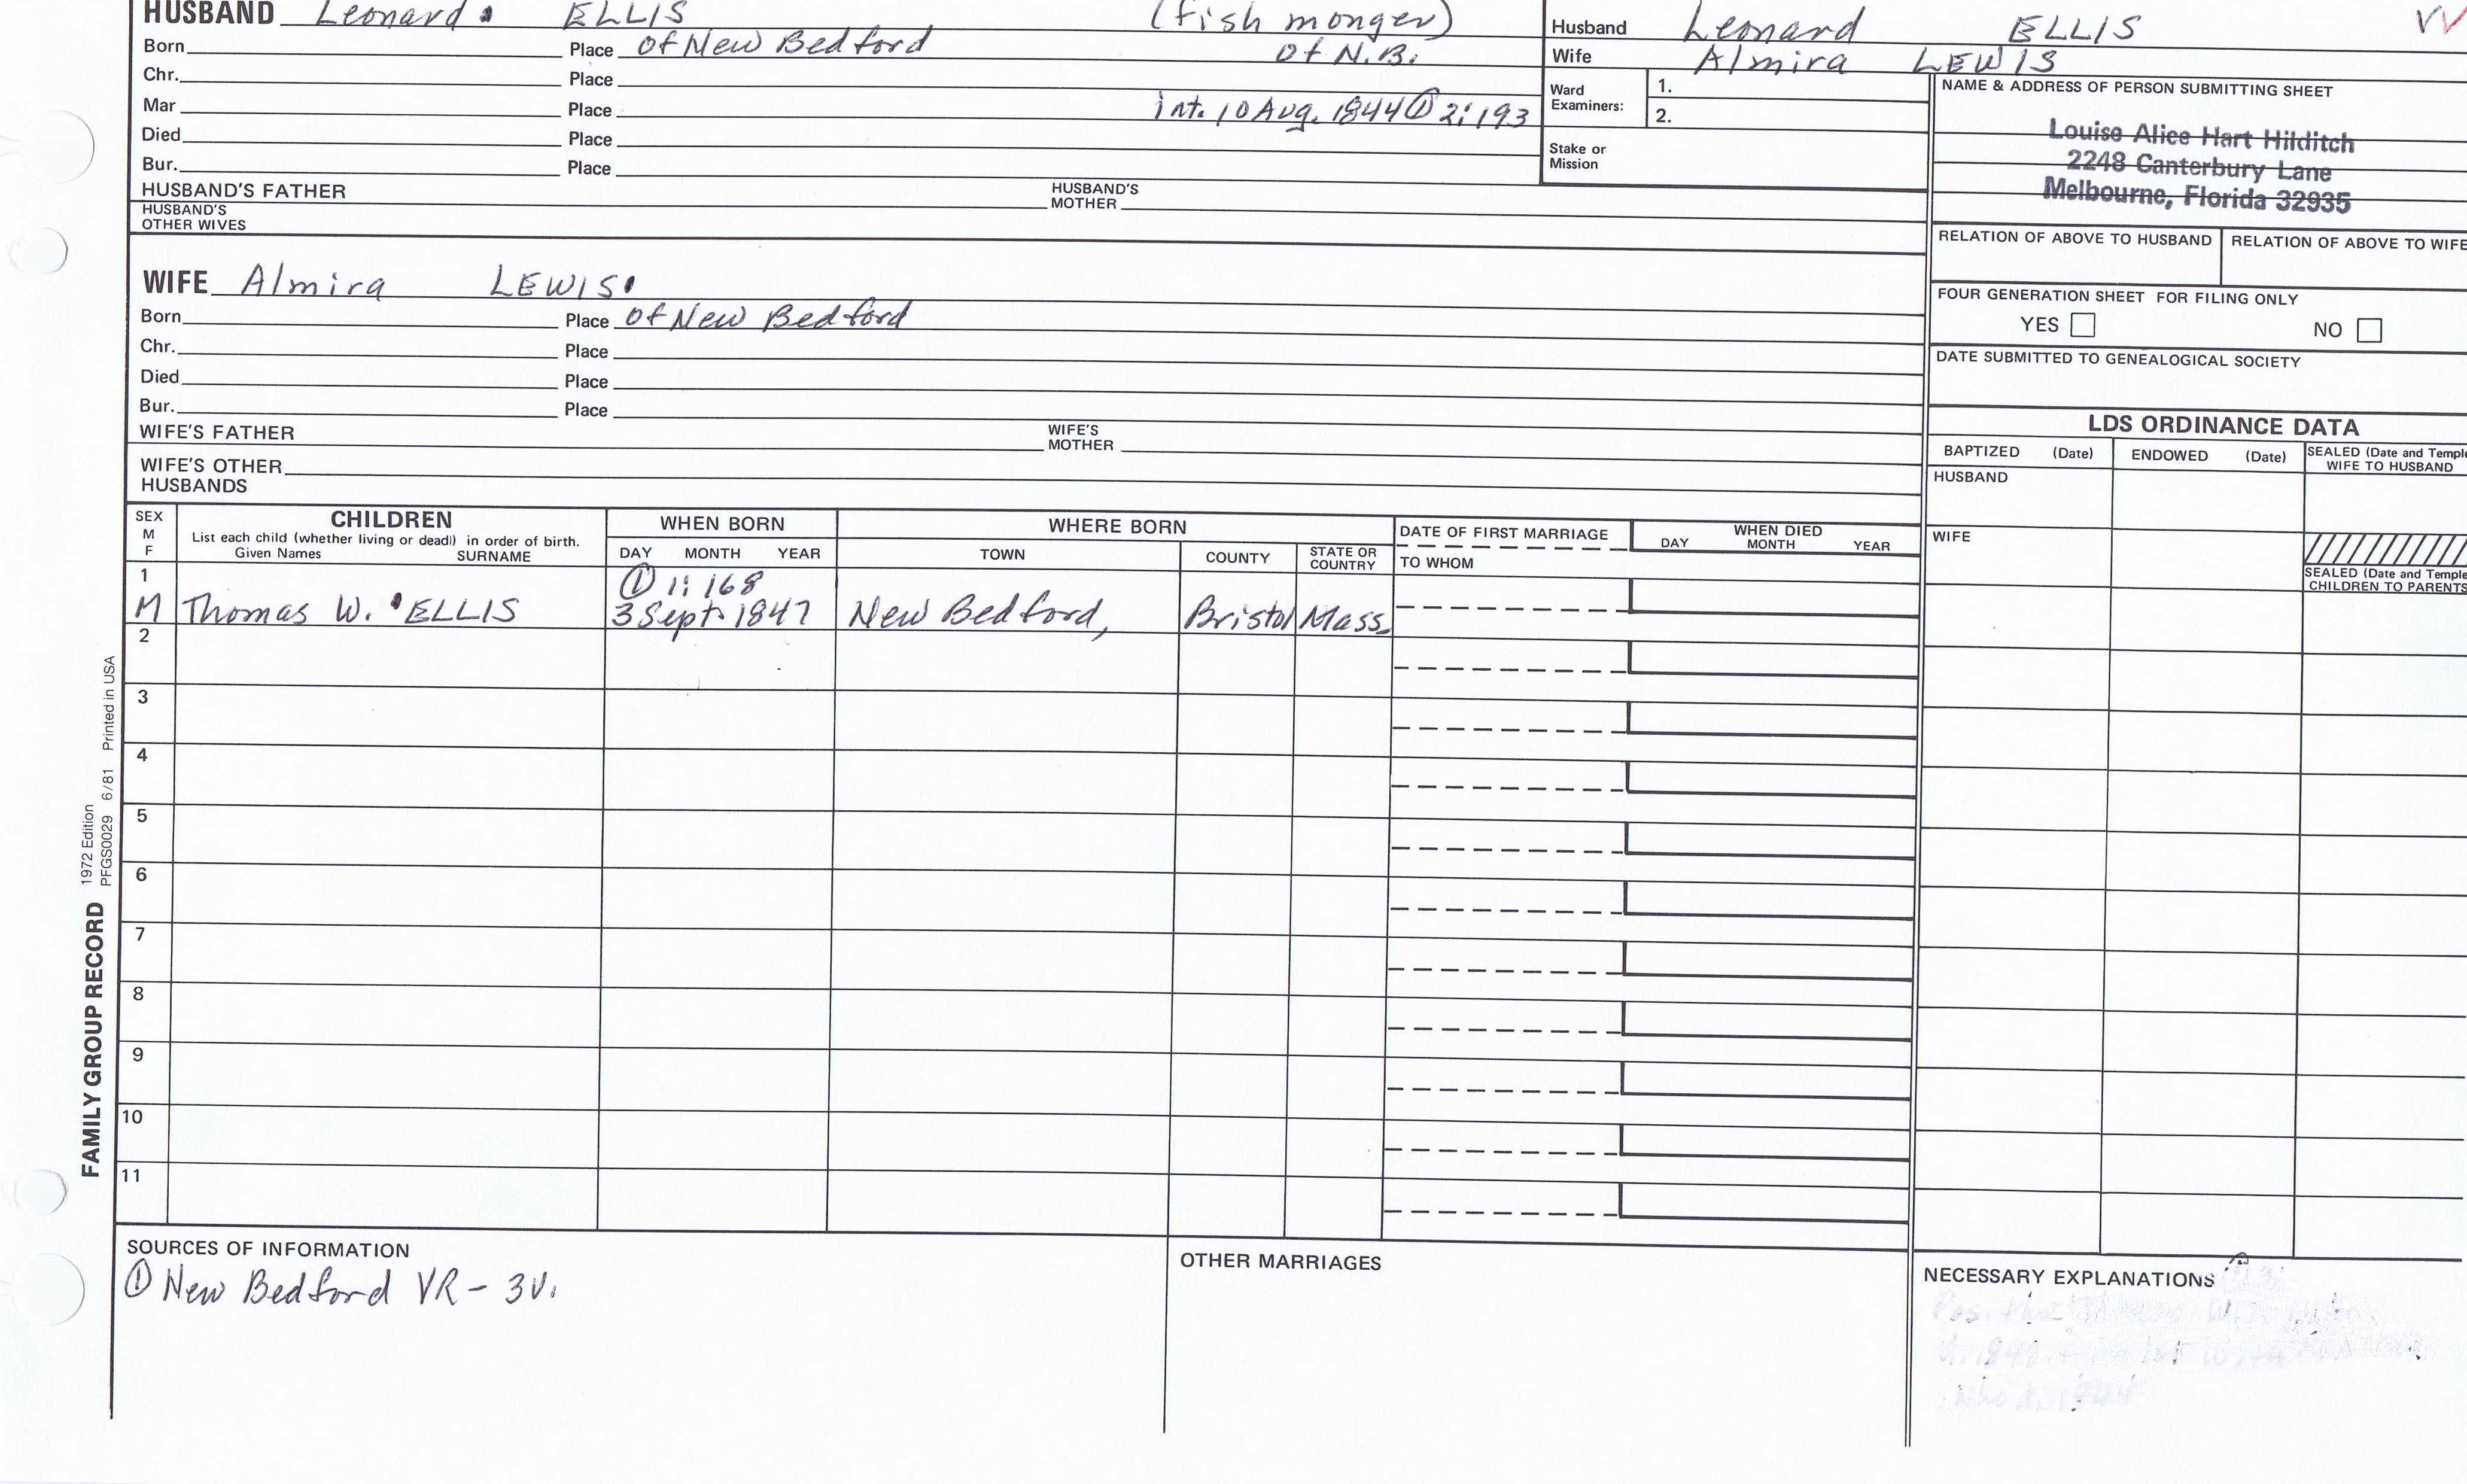 HUSBAND Leonard ELLIS (fish monger)
Born Place of New Bedford of N.B.
Chr. Place
Mar Place int. 10 Aug. 1844 ① 2:193
Died Place
Bur. Place
HUSBAND'S FATHER HUSBAND'S MOTHER
HUSBAND'S OTHER WIVES
Husband Leonard ELLIS VV
Wife Almira LEWIS
Ward Examiners: 1.
2.
Stake or Mission
NAME & ADDRESS OF PERSON SUBMITTING SHEET
Louise Alice Hart Hilditch
2248 Canterbury Lane
Melbourne, Florida 32935
RELATION OF ABOVE TO HUSBAND RELATION OF ABOVE TO WIFE
FOUR GENERATION SHEET FOR FILING ONLY
YES NO
DATE SUBMITTED TO GENEALOGICAL SOCIETY
WIFE Almira LEWIS
Born Place of New Bedford
Chr. Place
Died Place
Bur. Place
WIFE'S FATHER WIFE'S MOTHER
WIFE'S OTHER HUSBANDS
LDS ORDINANCE DATA
BAPTIZED (Date) ENDOWED (Date) SEALED (Date and Temple
WIFE TO HUSBAND
HUSBAND
WIFE
SEALED (Date and Temple
CHILDREN TO PARENTS
SEX
M
F
CHILDREN
List each child (whether living or dead) in order of birth.
Given Names SURNAME
WHEN BORN
DAY MONTH YEAR
WHERE BORN
TOWN COUNTY STATE OR COUNTRY
DATE OF FIRST MARRIAGE
TO WHOM
WHEN DIED
DAY MONTH YEAR
1 ① 1:168
M Thomas W. ELLIS 3 Sept. 1847 New Bedford, Bristol Mass.
2
3
4
5
6
7
8
9
10
11
FAMILY GROUP RECORD 1972 Edition
PFGS0029 6/81 Printed in USA
SOURCES OF INFORMATION
① New Bedford VR - 3V.
OTHER MARRIAGES
NECESSARY EXPLANATIONS